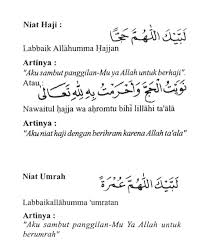 Niat Haji :
لَبَّيْكَ اللّٰهُمَّ حَجًّا
Labbaik Allāhumma Ḥajjan
Artinya :
"Aku sambut panggilan-Mu ya Allah untuk berhaji".
Atau
نَوَيْتُ الْحَجَّ وَأَحْرَمْتُ بِهِ لِلّٰهِ تَعَالَى
Nawaitul ḥajja wa aḥromtu bihī lillāhi ta'ālā
Artinya :
"Aku niat haji dengan berihram karena Allah ta'ala"
Niat Umrah
لَبَّيْكَ اللّٰهُمَّ عُمْرَةً
Labbaikallāhumma 'umratan
Artinya :
"Aku sambut panggilan-Mu Ya Allah untuk
berumrah"